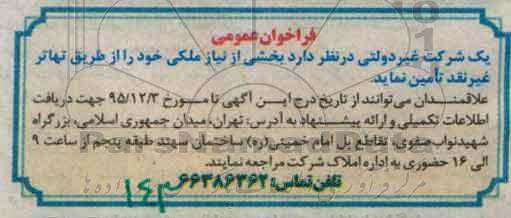 فراخوان عمومی
یک شرکت غیردولتی درنظر دارد بخشی از نیاز ملکی خود را از طریق تهاتر
غیرنقد تأمین نماید.
علاقمندان می‌توانند از تاریخ درج این آگهی تا مورخ ۹۵/۱۲/۳ جهت دریافت
اطلاعات تکمیلی و ارائه پیشنهاد به آدرس: تهران، میدان جمهوری اسلامی، بزرگراه
شهیدنواب صفوی، تقاطع پل امام خمینی(ره) ساختمان سهند طبقه پنجم از ساعت ۹
الی ۱۶ حضوری به اداره املاک شرکت مراجعه نمایند.
تلفن تماس: ۶۶۳۸۶۳۶۲
۱۴۳